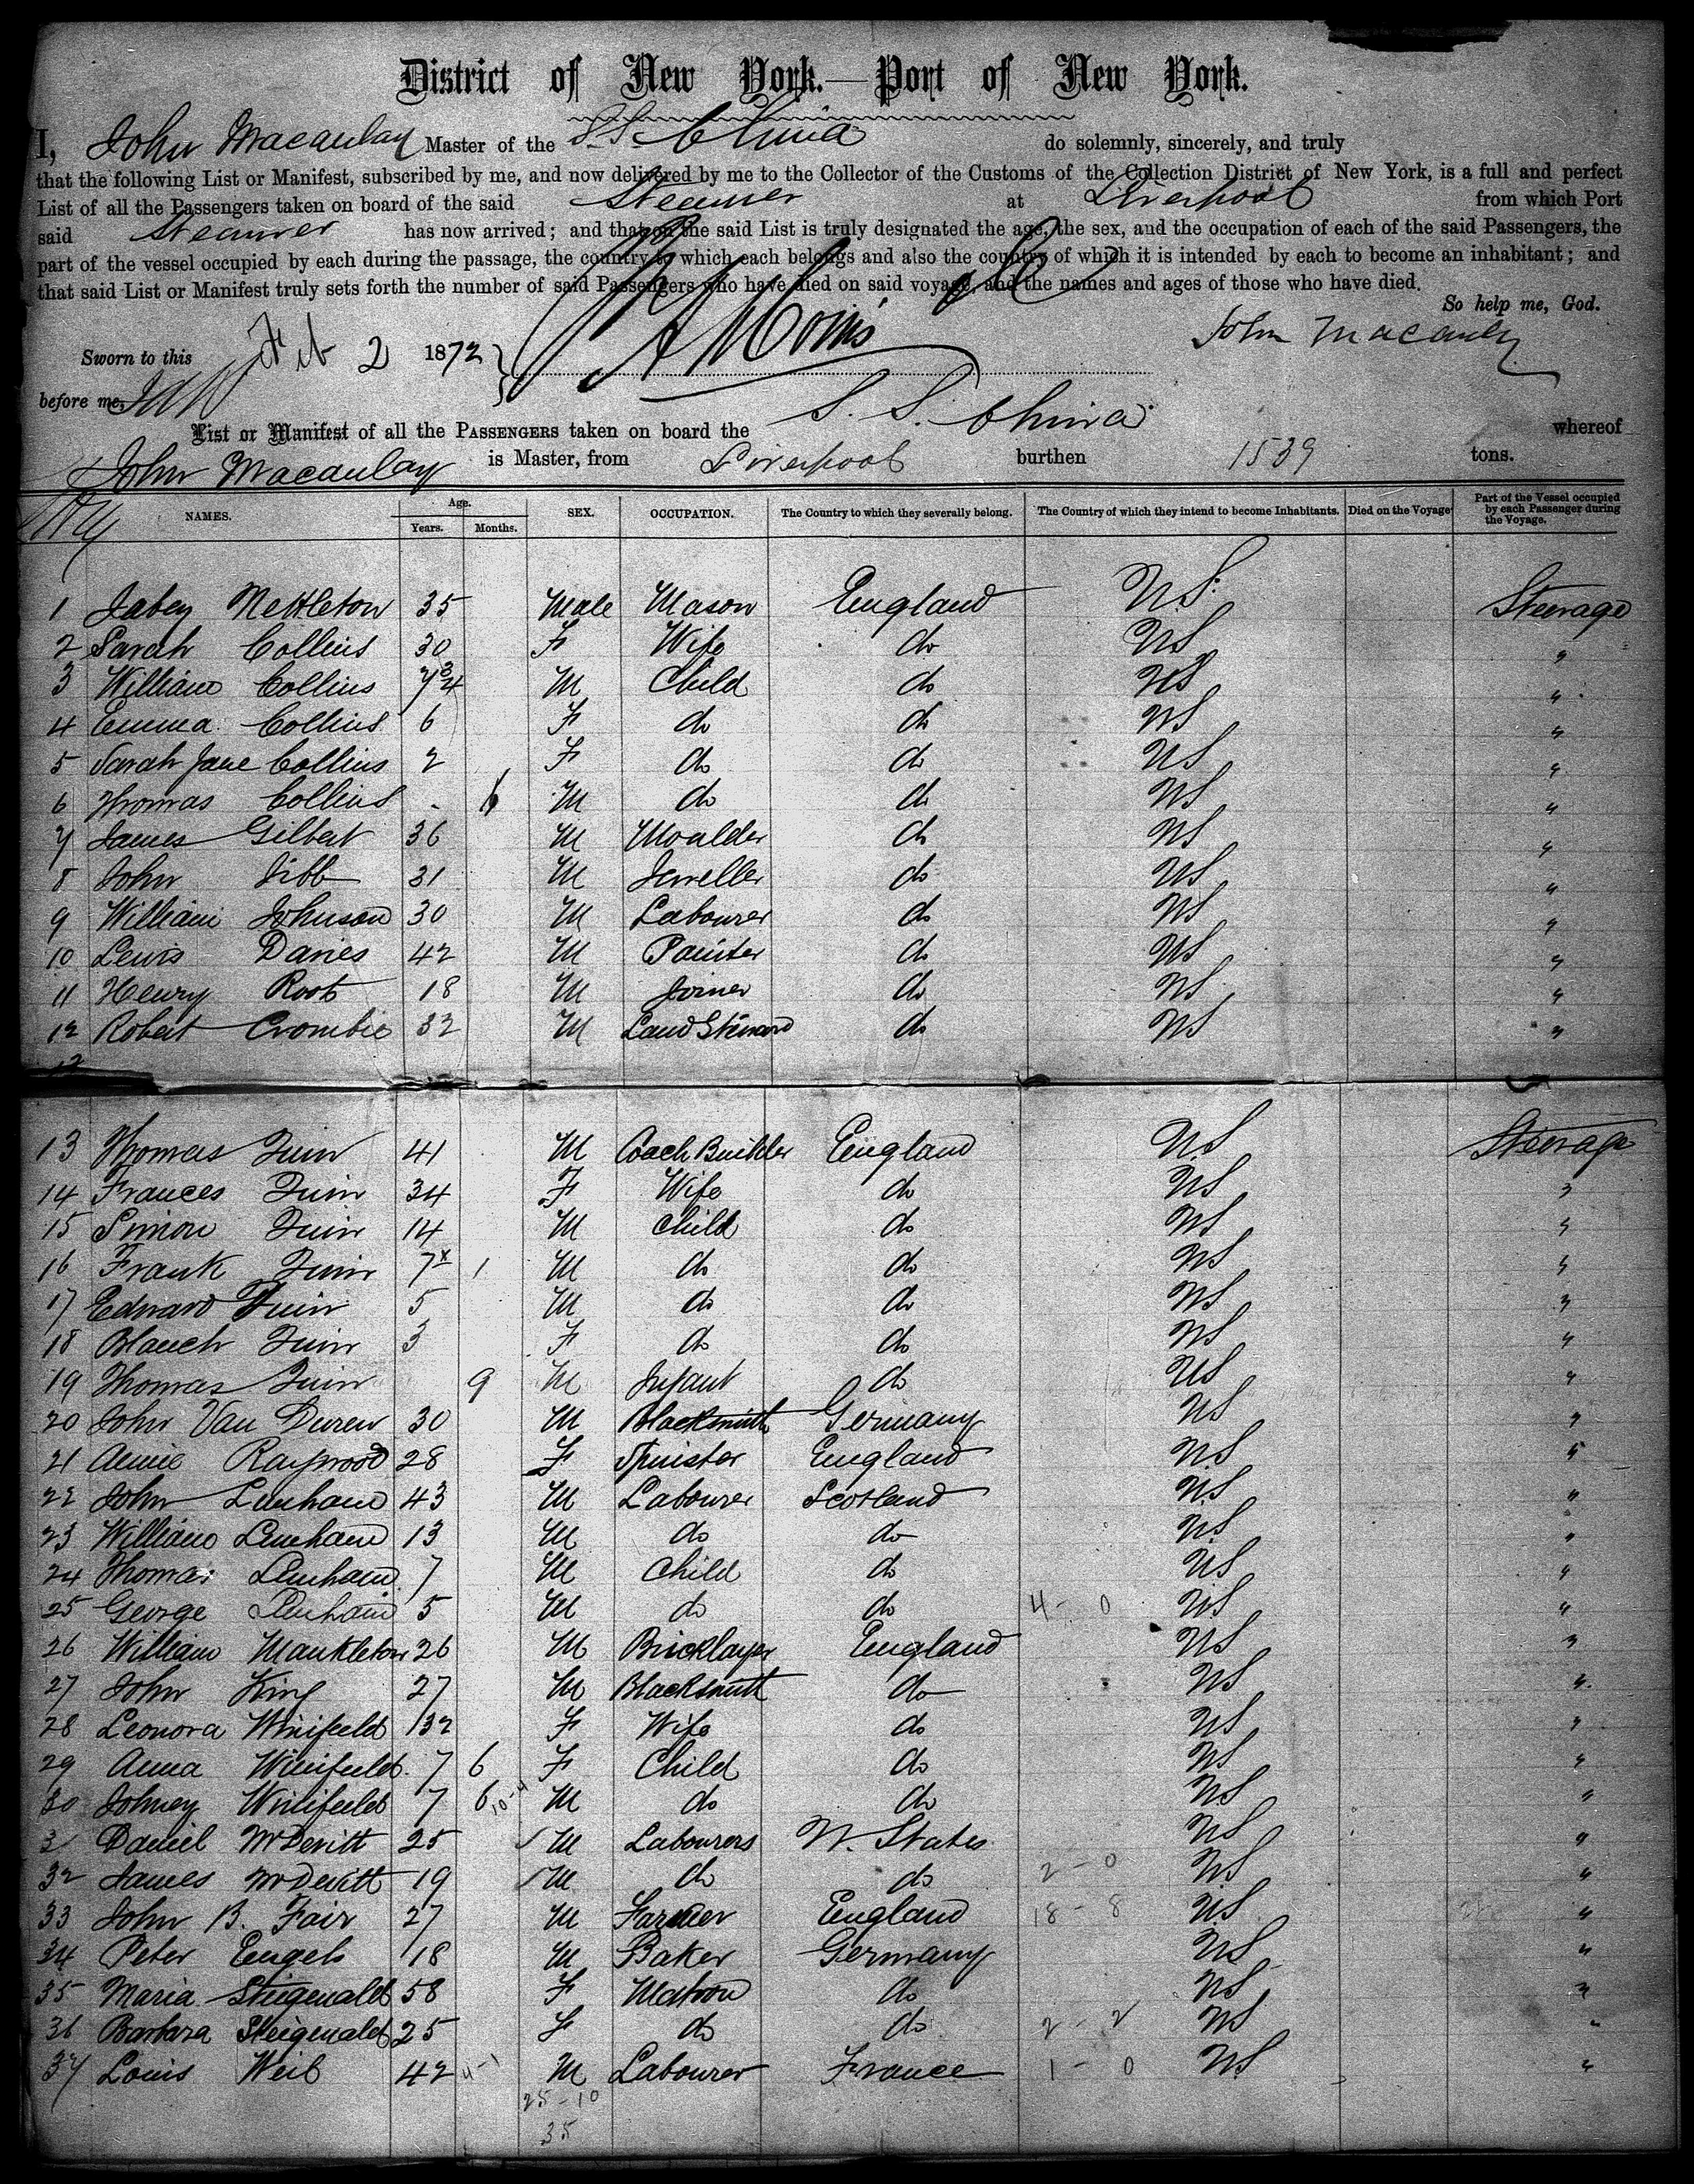 District of New York.—Port of New York.
I, John Macaulay Master of the S.S. China do solemnly, sincerely, and truly
that the following List or Manifest, subscribed by me, and now delivered by me to the Collector of the Customs of the Collection District of New York, is a full and perfect
List of all the Passengers taken on board of the said Steamer at Liverpool from which Port
said Steamer has now arrived; and that on the said List is truly designated the age, the sex, and the occupation of each of the said Passengers, the
part of the vessel occupied by each during the passage, the country to which each belongs and also the country of which it is intended by each to become an inhabitant; and
that said List or Manifest truly sets forth the number of said Passengers who have died on said voyage, and the names and ages of those who have died.
So help me, God.
Sworn to this Feb 2 1872 John Macaulay
before me,
List or Manifest of all the PASSENGERS taken on board the S. S. China whereof
John Macaulay is Master, from Liverpool burthen 1539 tons.
NAMES. Age. Years. Months. SEX. OCCUPATION. The Country to which they severally belong. The Country of which they intend to become Inhabitants. Died on the Voyage Part of the Vessel occupied by each Passenger during the Voyage.
1 Jabez Nettleton 35 Male Mason England US. Steerage
2 Sarah Collins 30 F Wife do US "
3 William Collins 7 3/4 M Child do US "
4 Emma Collins 6 F do do US "
5 Sarah Jane Collins 2 F do do US "
6 Thomas Collins - 6 M do do US "
7 James Gilbert 36 M Moulder do US "
8 John Jibb 31 M Jeweller do US "
9 William Johnson 30 M Labourer do US "
10 Lewis Davies 42 M Painter do US "
11 Henry Root 18 M Joiner do US "
12 Robert Crombie 32 M Land Steward do US "
13 Thomas 41 M Coach Builder England US Steerage
14 Frances 34 F Wife do US "
15 Simon 14 M Child do US "
16 Frank 7x 1 M do do US "
17 Edward 5 M do do US "
18 Blanch 3 F do do US "
19 Thomas 9 M Infant do US "
20 John Van Duren 30 M Blacksmith Germany US "
21 Annie Raywood 28 F Spinster England US "
22 John Lenham 43 M Labourer Scotland US "
23 William Lenham 13 M do do US "
24 Thomas Lenham 7 M Child do US "
25 George Lenham 5 M do do 4 - 0 US "
26 William Mankleton 26 M Bricklayer England US "
27 John King 27 M Blacksmith do US "
28 Leonora Winifeld 32 F Wife do US "
29 Anna Winifeld 7 6 F Child do US "
30 Johney Winifeld 7 6 10-4 M do do US "
31 Daniel McDevitt 25 M Labourers U. States US "
32 James McDevitt 19 M do do 2 - 0 US "
33 John B. Fair 27 M Farmer England 18 - 8 US "
34 Peter Engels 18 M Baker Germany US "
35 Maria Steigenald 58 F Matron do US "
36 Barbara Steigenald 25 F do do 2 - 2 US "
37 Louis Weib 42 4-1 M Labourer France 1 - 0 US "
25 - 10
35